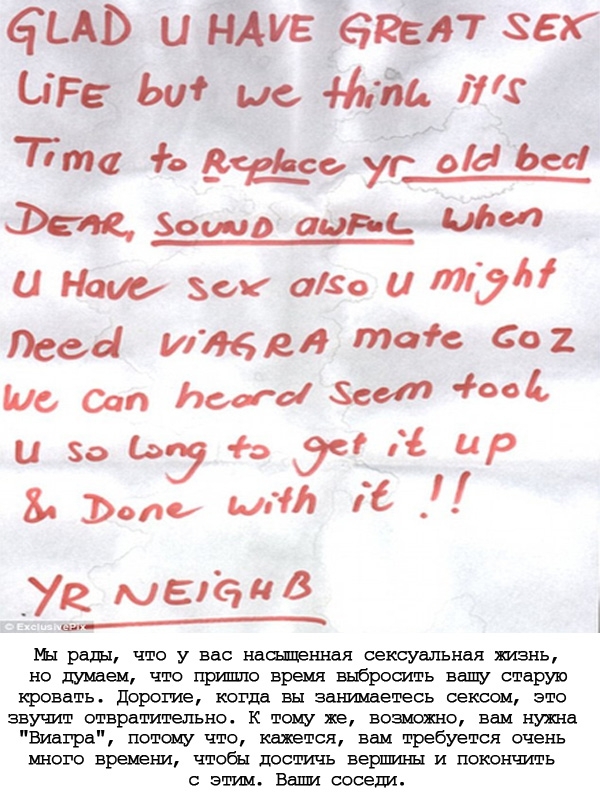 GLAD U HAVE GREAT SEX
LiFE but we think it's
Time to Replace yr old bed
DEAR, SOUND AWFUL when
U Have sex also u might
need ViAGRA mate COZ
We can heard seem took
u so long to get it up
& Done with it !!
YR NEIGHB
© ExclusivePix
Мы рады, что у вас насыщенная сексуальная жизнь,
но думаем, что пришло время выбросить вашу старую
кровать. Дорогие, когда вы занимаетесь сексом, это
звучит отвратительно. К тому же, возможно, вам нужна
"Виагра", потому что, кажется, вам требуется очень
много времени, чтобы достичь вершины и покончить
с этим. Ваши соседи.